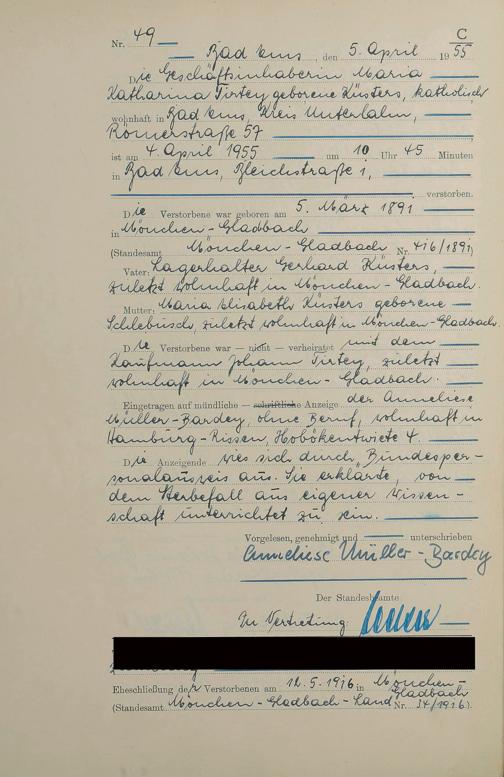 C
Nr. 49
Bad Ems, den 5. April 1955
Die Geschäftsinhaberin Maria
Katharina Tirtey geborene Küsters, katholisch
wohnhaft in Bad Ems, Kreis Unterlahn,
Römerstraße 57
ist am 4. April 1955 um 10 Uhr 45 Minuten
in Bad Ems, Bleichstraße 1,
verstorben.
Die Verstorbene war geboren am 5. März 1891
in Mönchen-Gladbach
(Standesamt Mönchen-Gladbach Nr. 416/1891)
Vater: Lagerhalter Gerhard Küsters,
zuletzt wohnhaft in Mönchen-Gladbach.
Mutter: Maria Elisabeth Küsters geborene
Schlebusch, zuletzt wohnhaft in Mönchen-Gladbach.
Die Verstorbene war — nicht — verheiratet mit dem
Kaufmann Johann Tirtey, zuletzt
wohnhaft in Mönchen-Gladbach.
Eingetragen auf mündliche — schriftliche Anzeige der Anneliese
Müller-Bardey, ohne Beruf, wohnhaft in
Hamburg-Rissen, Hobökentwiete 4.
Die Anzeigende wies sich durch Bundesper-
sonalausweis aus. Sie erklärte, von
dem Sterbefall aus eigener Wissen-
schaft unterrichtet zu sein.
Vorgelesen, genehmigt und unterschrieben
Anneliese Müller-Bardey
Der Standesbeamte
In Vertretung:
Eheschließung der Verstorbenen am 12.5.1916 in Mönchen-
Gladbach
(Standesamt Mönchen-Gladbach-Land Nr. 34/1916).